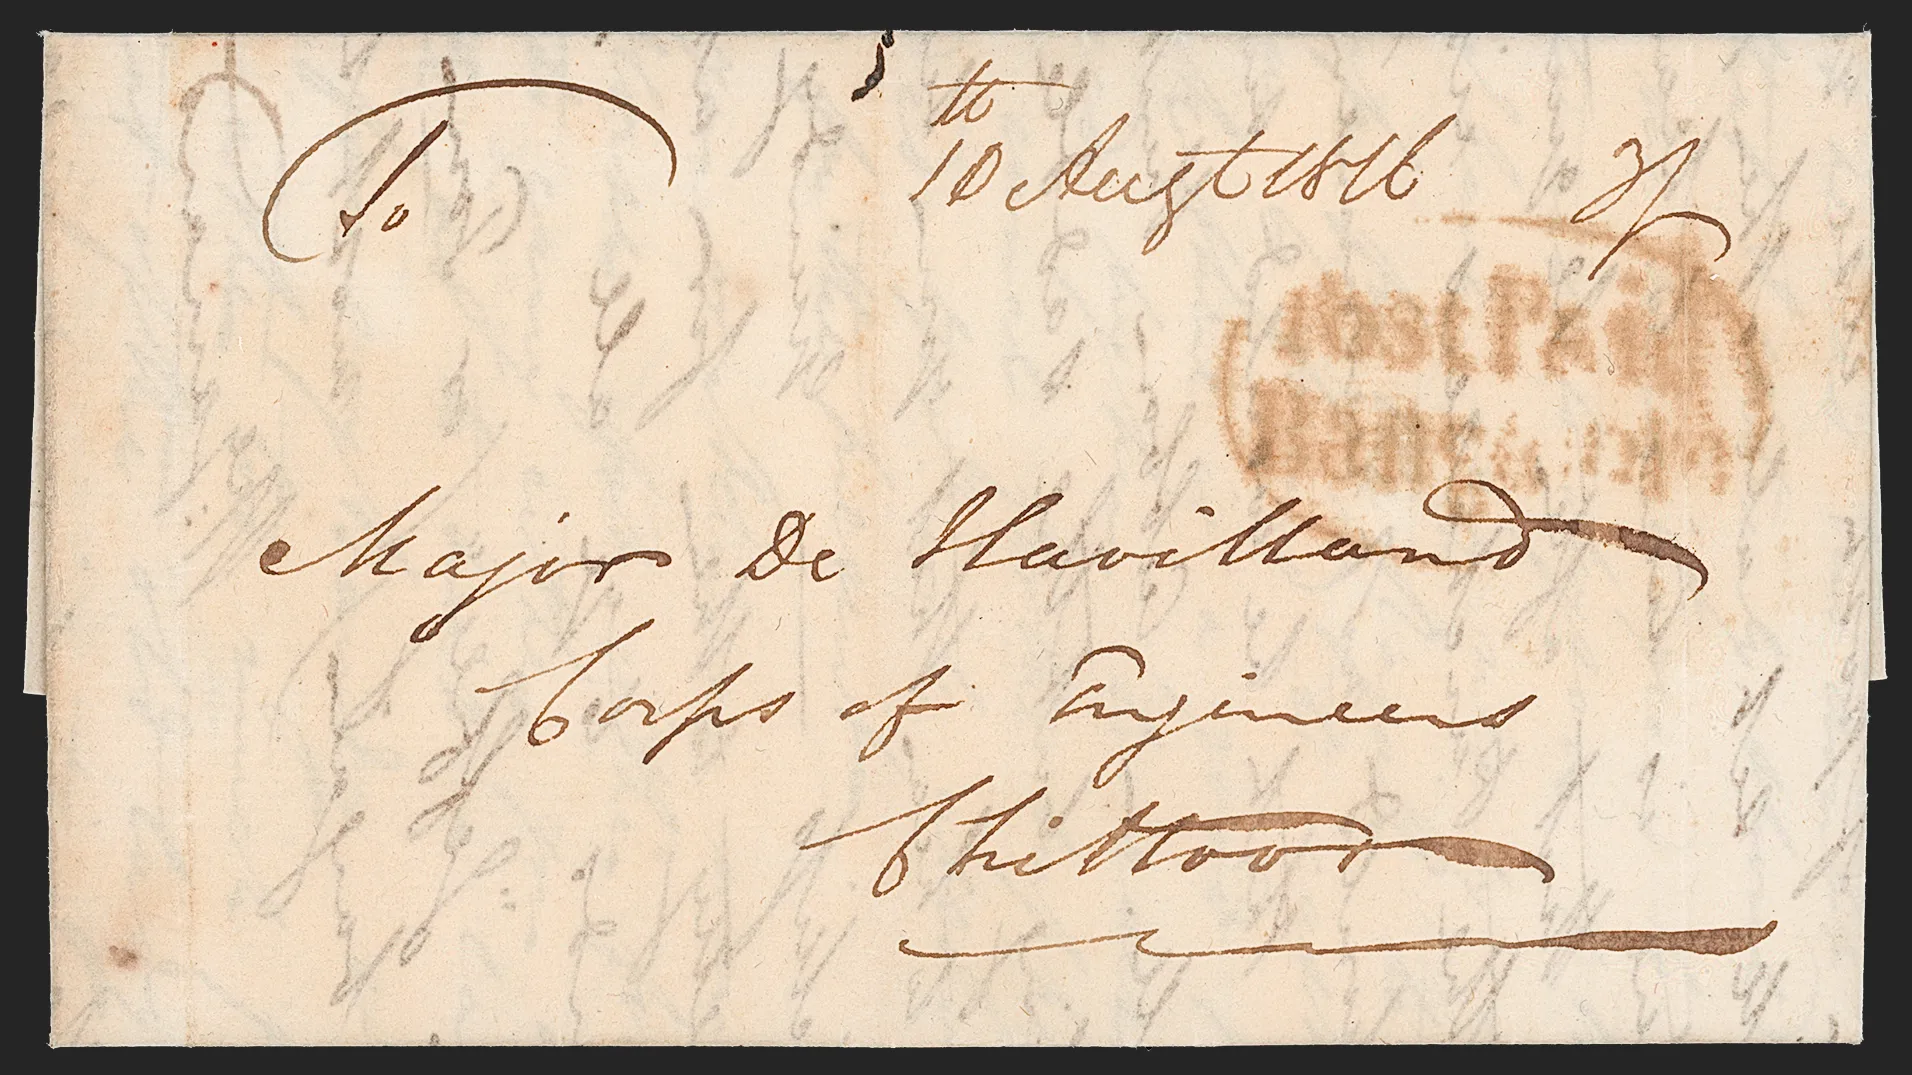 To
10th Augt 1816 3/
Post Paid
Bangalore
Major De Havilland
Corps of Engineers
Chittoor